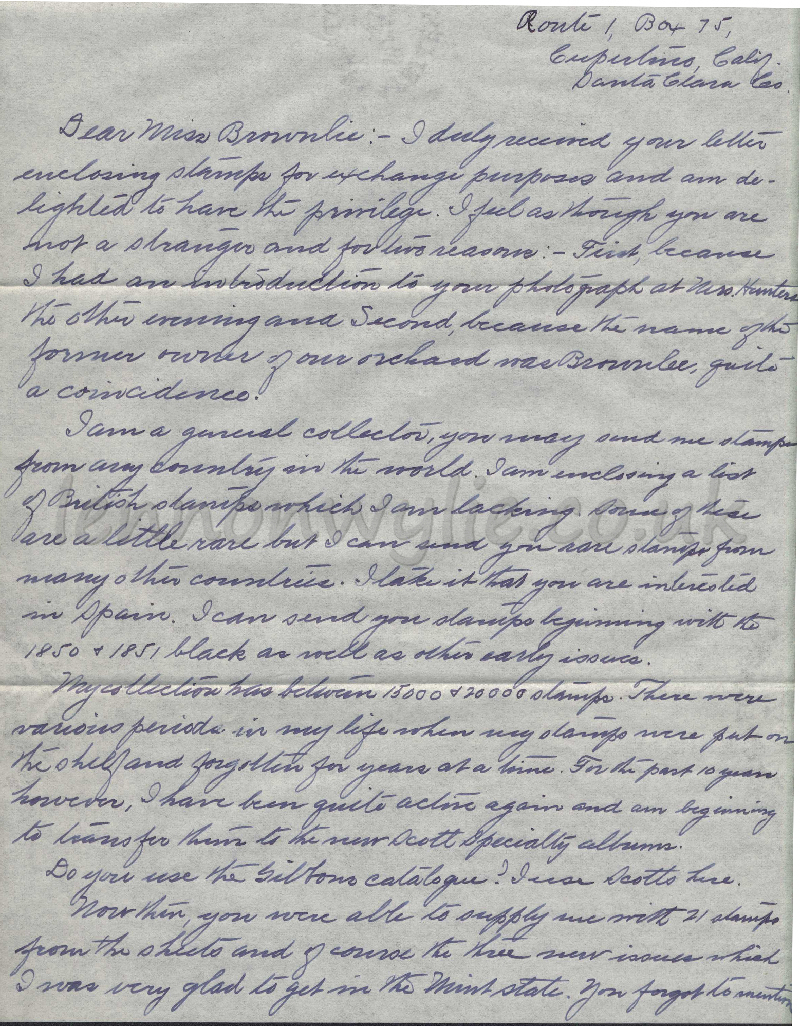 Route 1, Box 75,
Cupertino, Calif.
Santa Clara Co.
Dear Miss Brownlie:- I duly received your letter
enclosing stamps for exchange purposes and am de-
lighted to have the privilege. I feel as though you are
not a stranger and for two reasons:- First, because
I had an introduction to your photograph at Mrs. Hunters
the other evening and Second, because the name of the
former owner of our orchard was Brownlee, quite
a coincidence.
I am a general collector, you may send me stamps
from any country in the world. I am enclosing a list
of British stamps which I am lacking some of these
are a little rare but I can send you rare stamps from
many other countries. I take it that you are interested
in Spain. I can send you stamps beginning with the
1850 & 1851 black as well as other early issues.
My collection has between 15000 & 20000 stamps. There were
various periods in my life when my stamps were put on
the shelf and forgotten for years at a time. For the past 10 years
however, I have been quite active again and am beginning
to transfer them to the new Scott Specialty albums.
Do you use the Gibbons catalogue? I use Scotts here.
Now then, you were able to supply me with 21 stamps
from the sheets and of course the three new issues which
I was very glad to get in the Mint state. You forgot to mention
lennonwylie.co.uk